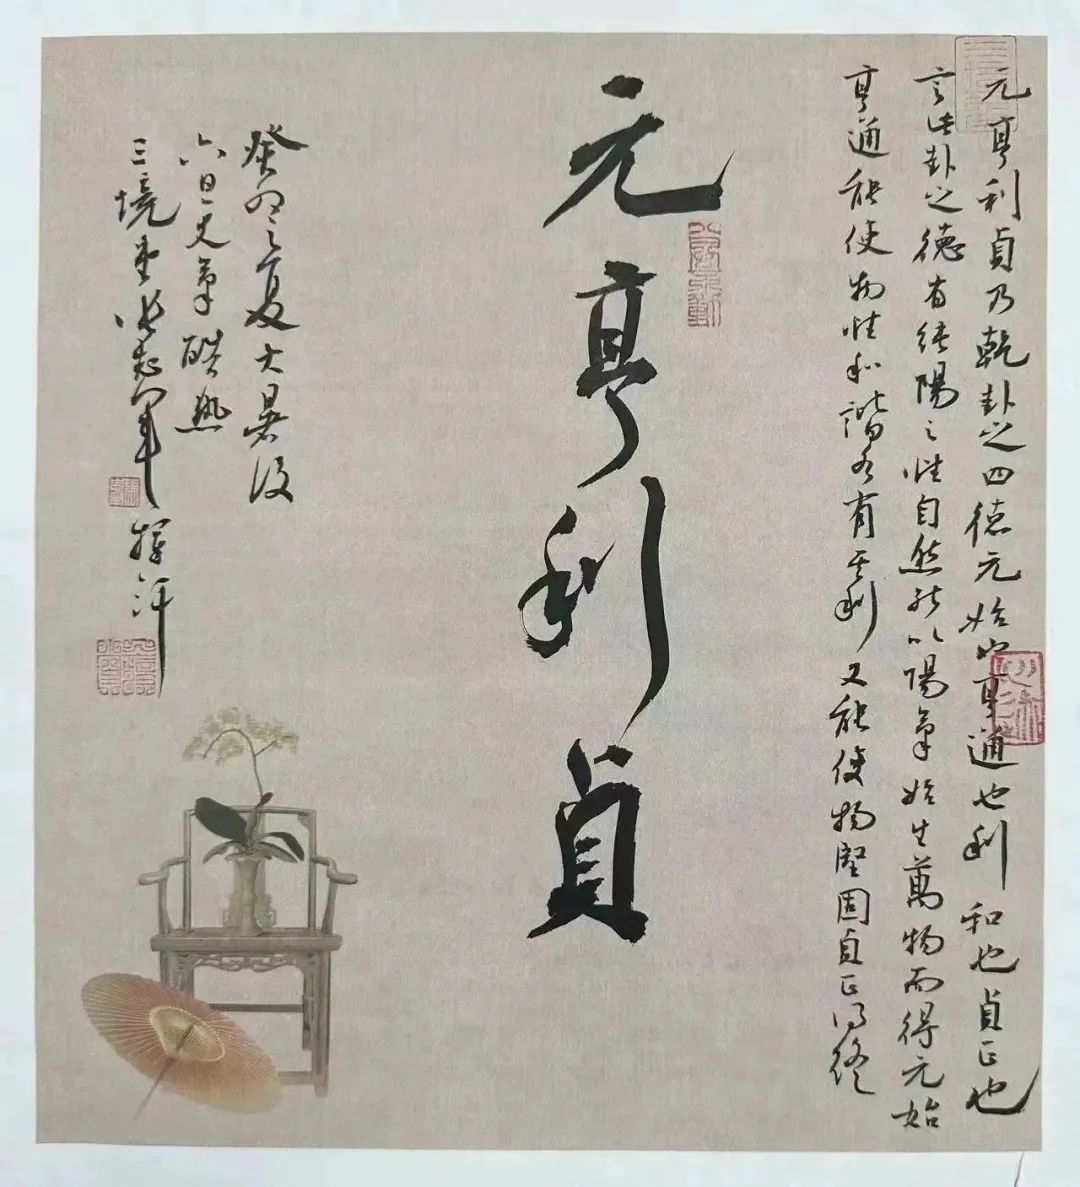 元亨利貞乃乾卦之四德元始也亨通也利和也貞正也
言此卦之德有純陽之性自然能以陽氣始生萬物而得元始
亨通能使物性和諧各有其利又能使物堅固貞正得終
元亨利貞
癸卯之夏大暑後
六日天氣酷熱
三境堂揮汗